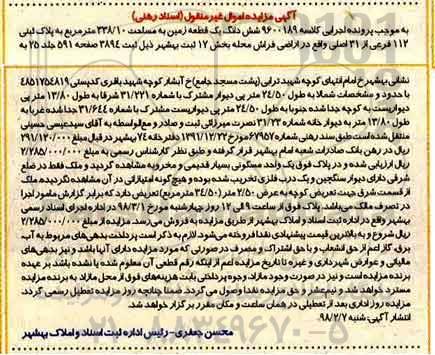 آگهی مزایده اموال غیر منقول (اسناد رهنی)
به موجب پرونده اجرایی کلاسه ۹۶۰۰۱۸۹ شش دانگ یک قطعه زمین به مساحت ۳۳۸/۱۰ مترمربع به پلاک ثبتی
۱۱۲ فرعی از ۳۱ اصلی واقع در اراضی فراش محله بخش ۱۷ ثبت بهشهر ذیل ثبت ۳۸۹۴ صفحه ۵۹۱ جلد ۲۵ به
نشانی بهشهر خ امام انتهای کوچه شهید ترابی (پشت مسجد جامع) خ آبشار کوچه شهید باقری کدپستی ۴۸۵۱۷۵۴۸۱۹
با حدود و مشخصات شمالا به طول ۲۴/۵۰ متر پی دیوار مشترک با شماره ۳۱/۲۲۱ شرقا به طول ۱۳/۸۰ متر پی
دیواریست به کوچه جدا شده جنوبا به طول ۲۴/۵۰ متر پی دیوار مشترک با شماره ۳۱/۶۴۴ جدا شده غربا به
طول ۱۳/۸۰ متر به دیوار خانه شماره ۳۱/۲۳ نصرت میرزائی ثبت و صادر و مع‌الواسطه به آقای سیدعیسی حسینی
منتقل شده است طبق سند رهنی شماره ۶۷۹۵۷ مورخ ۱۳۹۱/۱۲/۲۲ دفترخانه ۷۴ بهشهر در قبال مبلغ ۲۹۱/۱۲۰/۰۰۰
ریال در رهن بانک صادرات شعبه امام بهشهر قرار گرفته و طبق نظر کارشناس رسمی به مبلغ ۲/۲۸۵/۰۰۰/۰۰۰
ریال ارزیابی شده و در پلاک فوق یک واحد مسکونی بسیار قدیمی و مخروبه مشاهده گردید و ملک فقط در ضلع
شرقی دارای دیوار سنگچین و یک درب فلزی تخریب شده بوده و هیچ گونه امتیازاتی در آن مشاهده نگردیده ملک
از قسمت شرق جهت تعریض کوچه به عرض ۲/۵۰ متر (۳۴/۵۰ متر مربع) تعریض دارد که برابر گزارش مامور اجرا
در تصرف مالک می‌باشد. پلاک فوق از ساعت ۹ الی ۱۲ روز چهارشنبه مورخ ۹۸/۳/۱ در اداره اجرای اسناد رسمی
بهشهر واقع در اداره ثبت اسناد و املاک بهشهر از طریق مزایده به فروش می‌رسد. مزایده از مبلغ ۲/۲۸۵/۰۰۰/۰۰۰
ریال شروع و به بالاترین قیمت پیشنهادی نقدا فروخته می‌شود. لازم به ذکر است پرداخت بدهی‌های مربوط به آب،
برق، گاز اعم از حق انشعاب و یا حق اشتراک و مصرف در صورتی که مورد مزایده دارای آنها باشد و نیز بدهی‌های
مالیاتی و عوارض شهرداری و غیره تا تاریخ مزایده اعم از اینکه رقم قطعی آن معلوم شده یا نشده باشد، بر عهده
برنده مزایده است و نیز در صورت وجود مازاد وجوه پرداختی بابت هزینه‌های فوق از محل مازاد به برنده مزایده
مسترد خواهد شد و نیم عشر و حق مزایده نقدا وصول می گردد. ضمنا چنانچه روز مزایده تعطیل رسمی گردد،
مزایده روز اداری بعد از تعطیلی در همان ساعت و مکان مقرر برگزار خواهد شد.
انتشار آگهی: شنبه ۹۸/۲/۷
محسن جعفری - رئیس اداره ثبت اسناد و املاک بهشهر